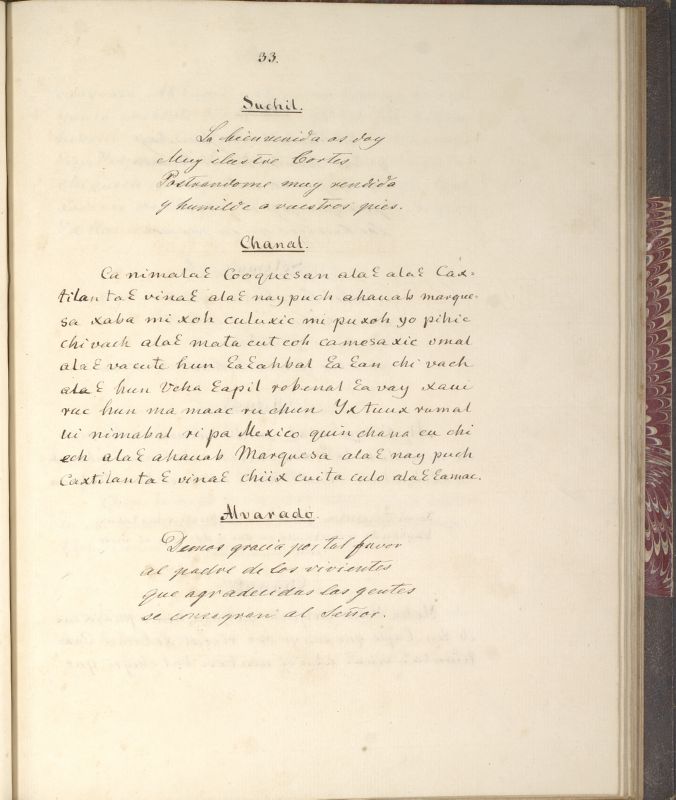 33.
Suchil.
La bienvenida os doy
Muy ilustre Cortes
Postrandome muy rendida
y humilde a vuestros pies.
Chanal.
Ca nimalaꜪ Cooquesan alaꜪ alaꜪ Cax-
tilantaꜪ vinaꜪ alaꜪ nay puch ahauab marque-
sa xaba mi xoh culuxic mi puxoh yo pihic
chi vach alaꜪ mata cut coh camosaxic vmal
alaꜪ vacute hun ꜪaꜪahbal Ꜫa Ꜫan chi vach
alaꜪ hun Vcha Ꜫapil robenal Ꜫa vay xaui
ruc hun ma maac ru chun Yx tuux rumal
ui nimabal ri pa Mexico quin chana cu chi
ech alaꜪ ahauab Marquesa alaꜪ nay puch
CaxtilantaꜪ vinaꜪ chiix cuita culo alaꜪ Ꜫamac.
Alvarado.
Demos gracia por tal favor
al padre de los vivientes
que agradecidas las gentes
se consagran al Señor.